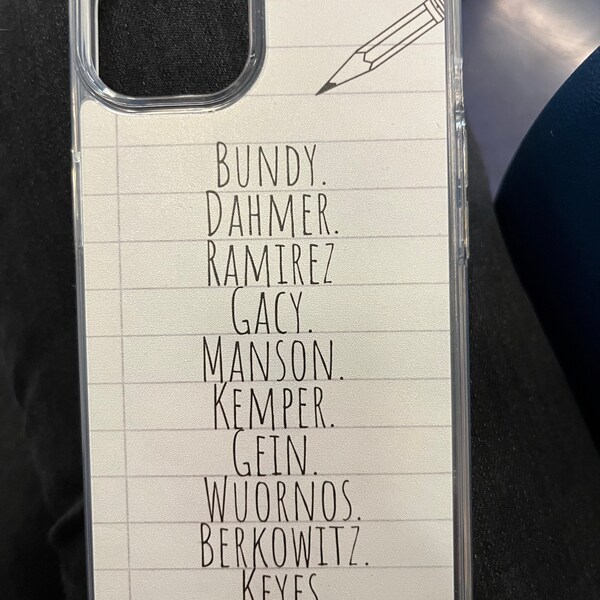 BUNDY.
DAHMER.
RAMIREZ
GACY.
MANSON.
KEMPER.
GEIN.
WUORNOS.
BERKOWITZ.
KEYES